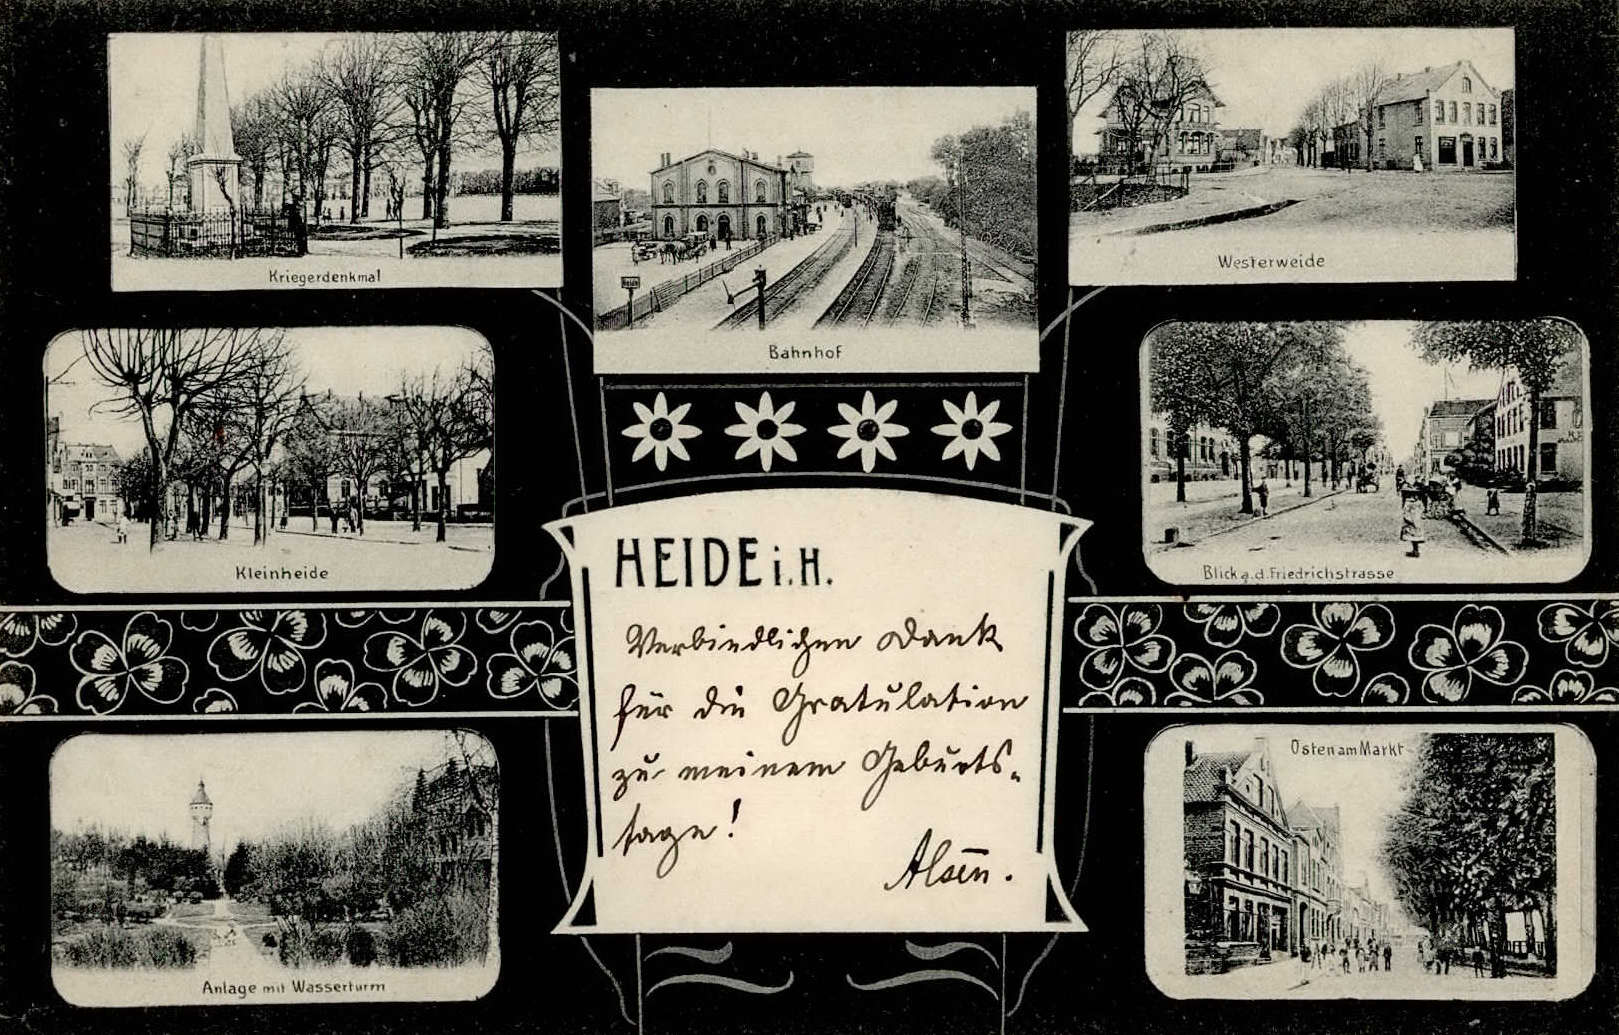 Kriegerdenkmal
Heide
Bahnhof
Westerweide
Kleinheide
Blick a. d. Friedrichstrasse
HEIDE i. H.
Verbindlichen Dank
für die Gratulation
zu meinem Geburts-
tage!
Alsen.
Anlage mit Wasserturm
Osten am Markt